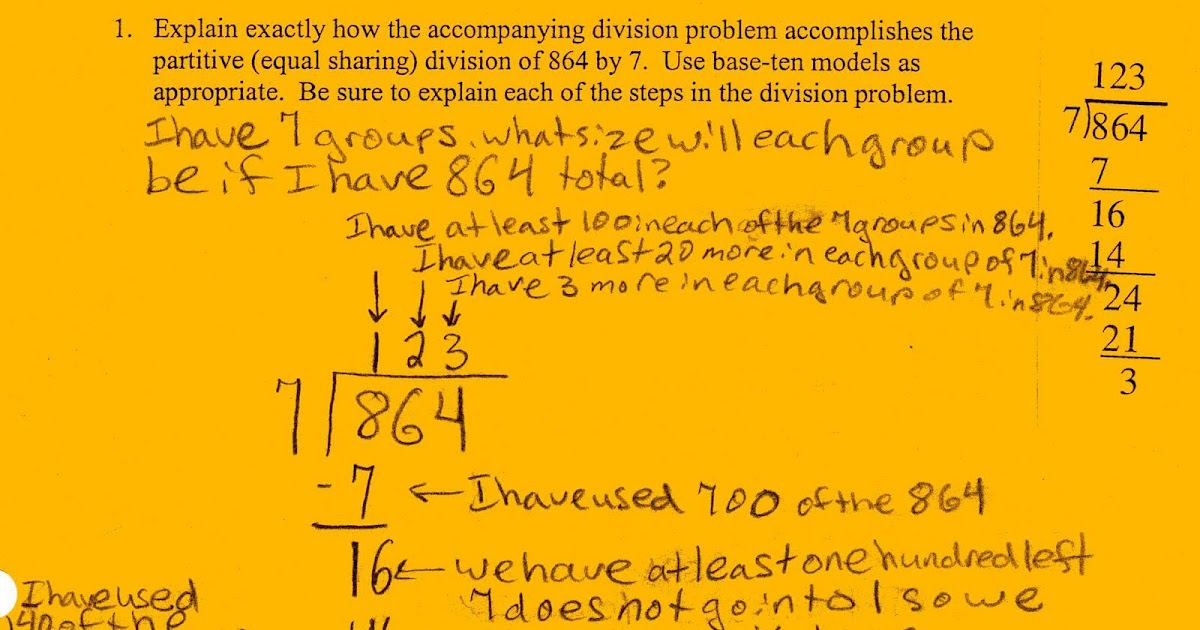 1. Explain exactly how the accompanying division problem accomplishes the
partitive (equal sharing) division of 864 by 7. Use base-ten models as
appropriate. Be sure to explain each of the steps in the division problem.
123
7)864
7
16
14
24
21
3
I have 7 groups. what size will each group
be if I have 864 total?
I have at least 100 in each of the 7 groups in 864.
I have at least 20 more in each group of 7 in 864.
I have 3 more in each group of 7 in 864.
↓ ↓ ↓
1 2 3
7 864
-7 ← I have used 700 of the 864
16 ← we have at least one hundred left
7 does not go into 1 so we
I have used
140 of the